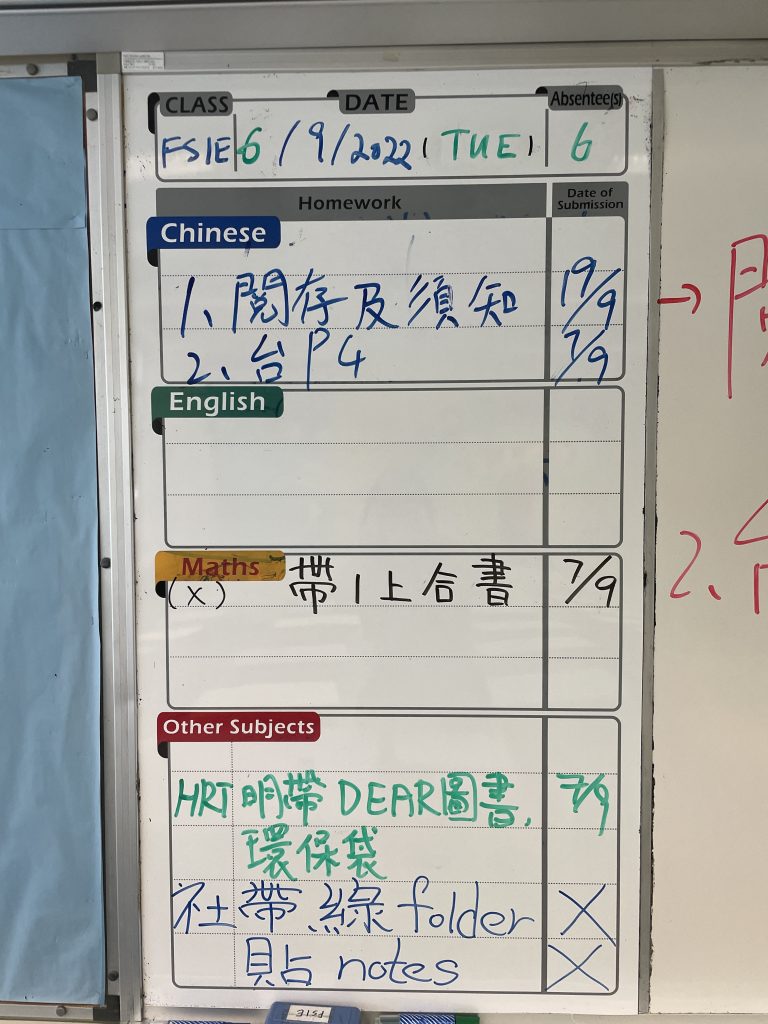 CLASS DATE Absentee(s)
FS1E 6/9/2022 (TUE) 6
Homework Date of Submission
Chinese
1、閱存及須知 19/9
2、台P4 7/9
English
Maths
(x) 帶1上合書 7/9
Other Subjects
HRT 明帶DEAR圖書, 7/9
環保袋
社 帶綠folder X
貼notes X
→
2、
FS1E